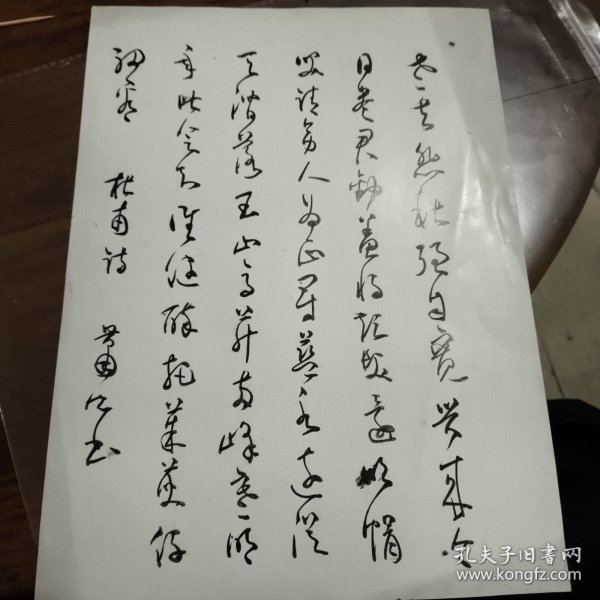 老去悲秋强自宽兴来今
日尽君欢羞将短发还吹帽
笑请旁人为正冠蓝水远从
千涧落玉山高并两峰寒明
年此会知谁健醉把茱萸仔
细看 杜甫诗 萧书
孔夫子旧书网
www.kongfz.com